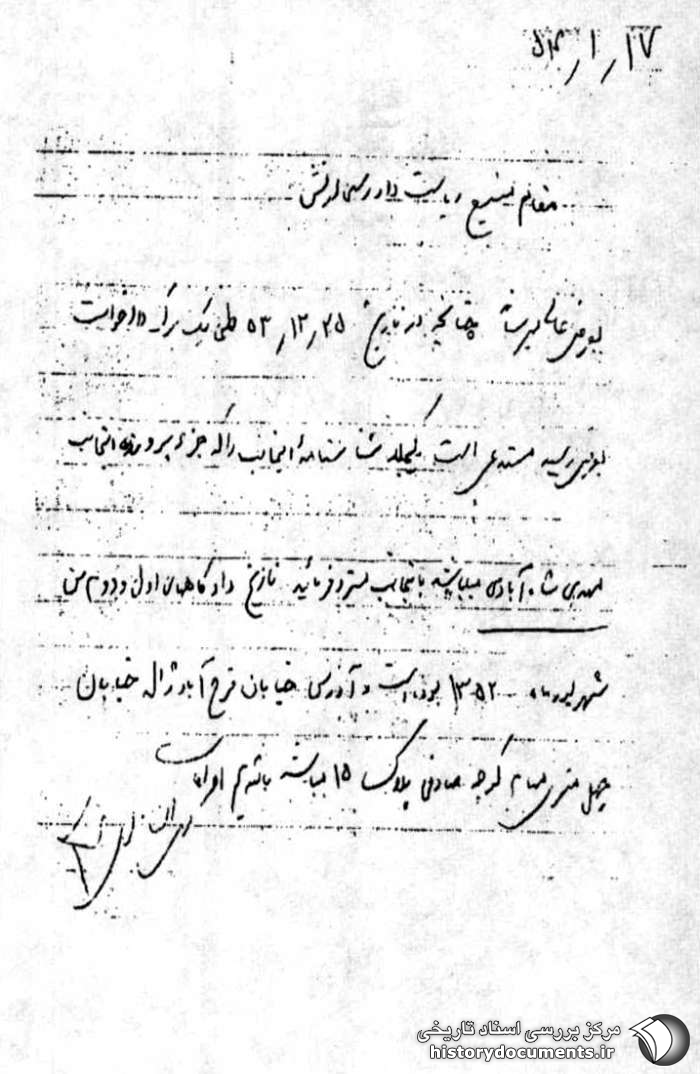 ۵۴/۱/۱۷
مقام منیع ریاست دادرسی ارتش
بعرض عالی میرساند چنانچه در تاریخ ۵۳/۱۲/۲۵ طی یک برگ درخواست
بعرض رسید مستدعی است یکجلد شناسنامهٔ اینجانب را که جزء پرونده اینجانب
مهدی شاه آبادی میباشد باینجانب مسترد فرمائید تاریخ دادگاههای اول و دوم من
شهریورماه ۱۳۵۲ بوده است و آدرس خیابان فرح آباد ژاله خیابان
چهل متری کوچه صادقی پلاک ۱۵ میباشد
مرکز بررسی اسناد تاریخی
historydocuments.ir